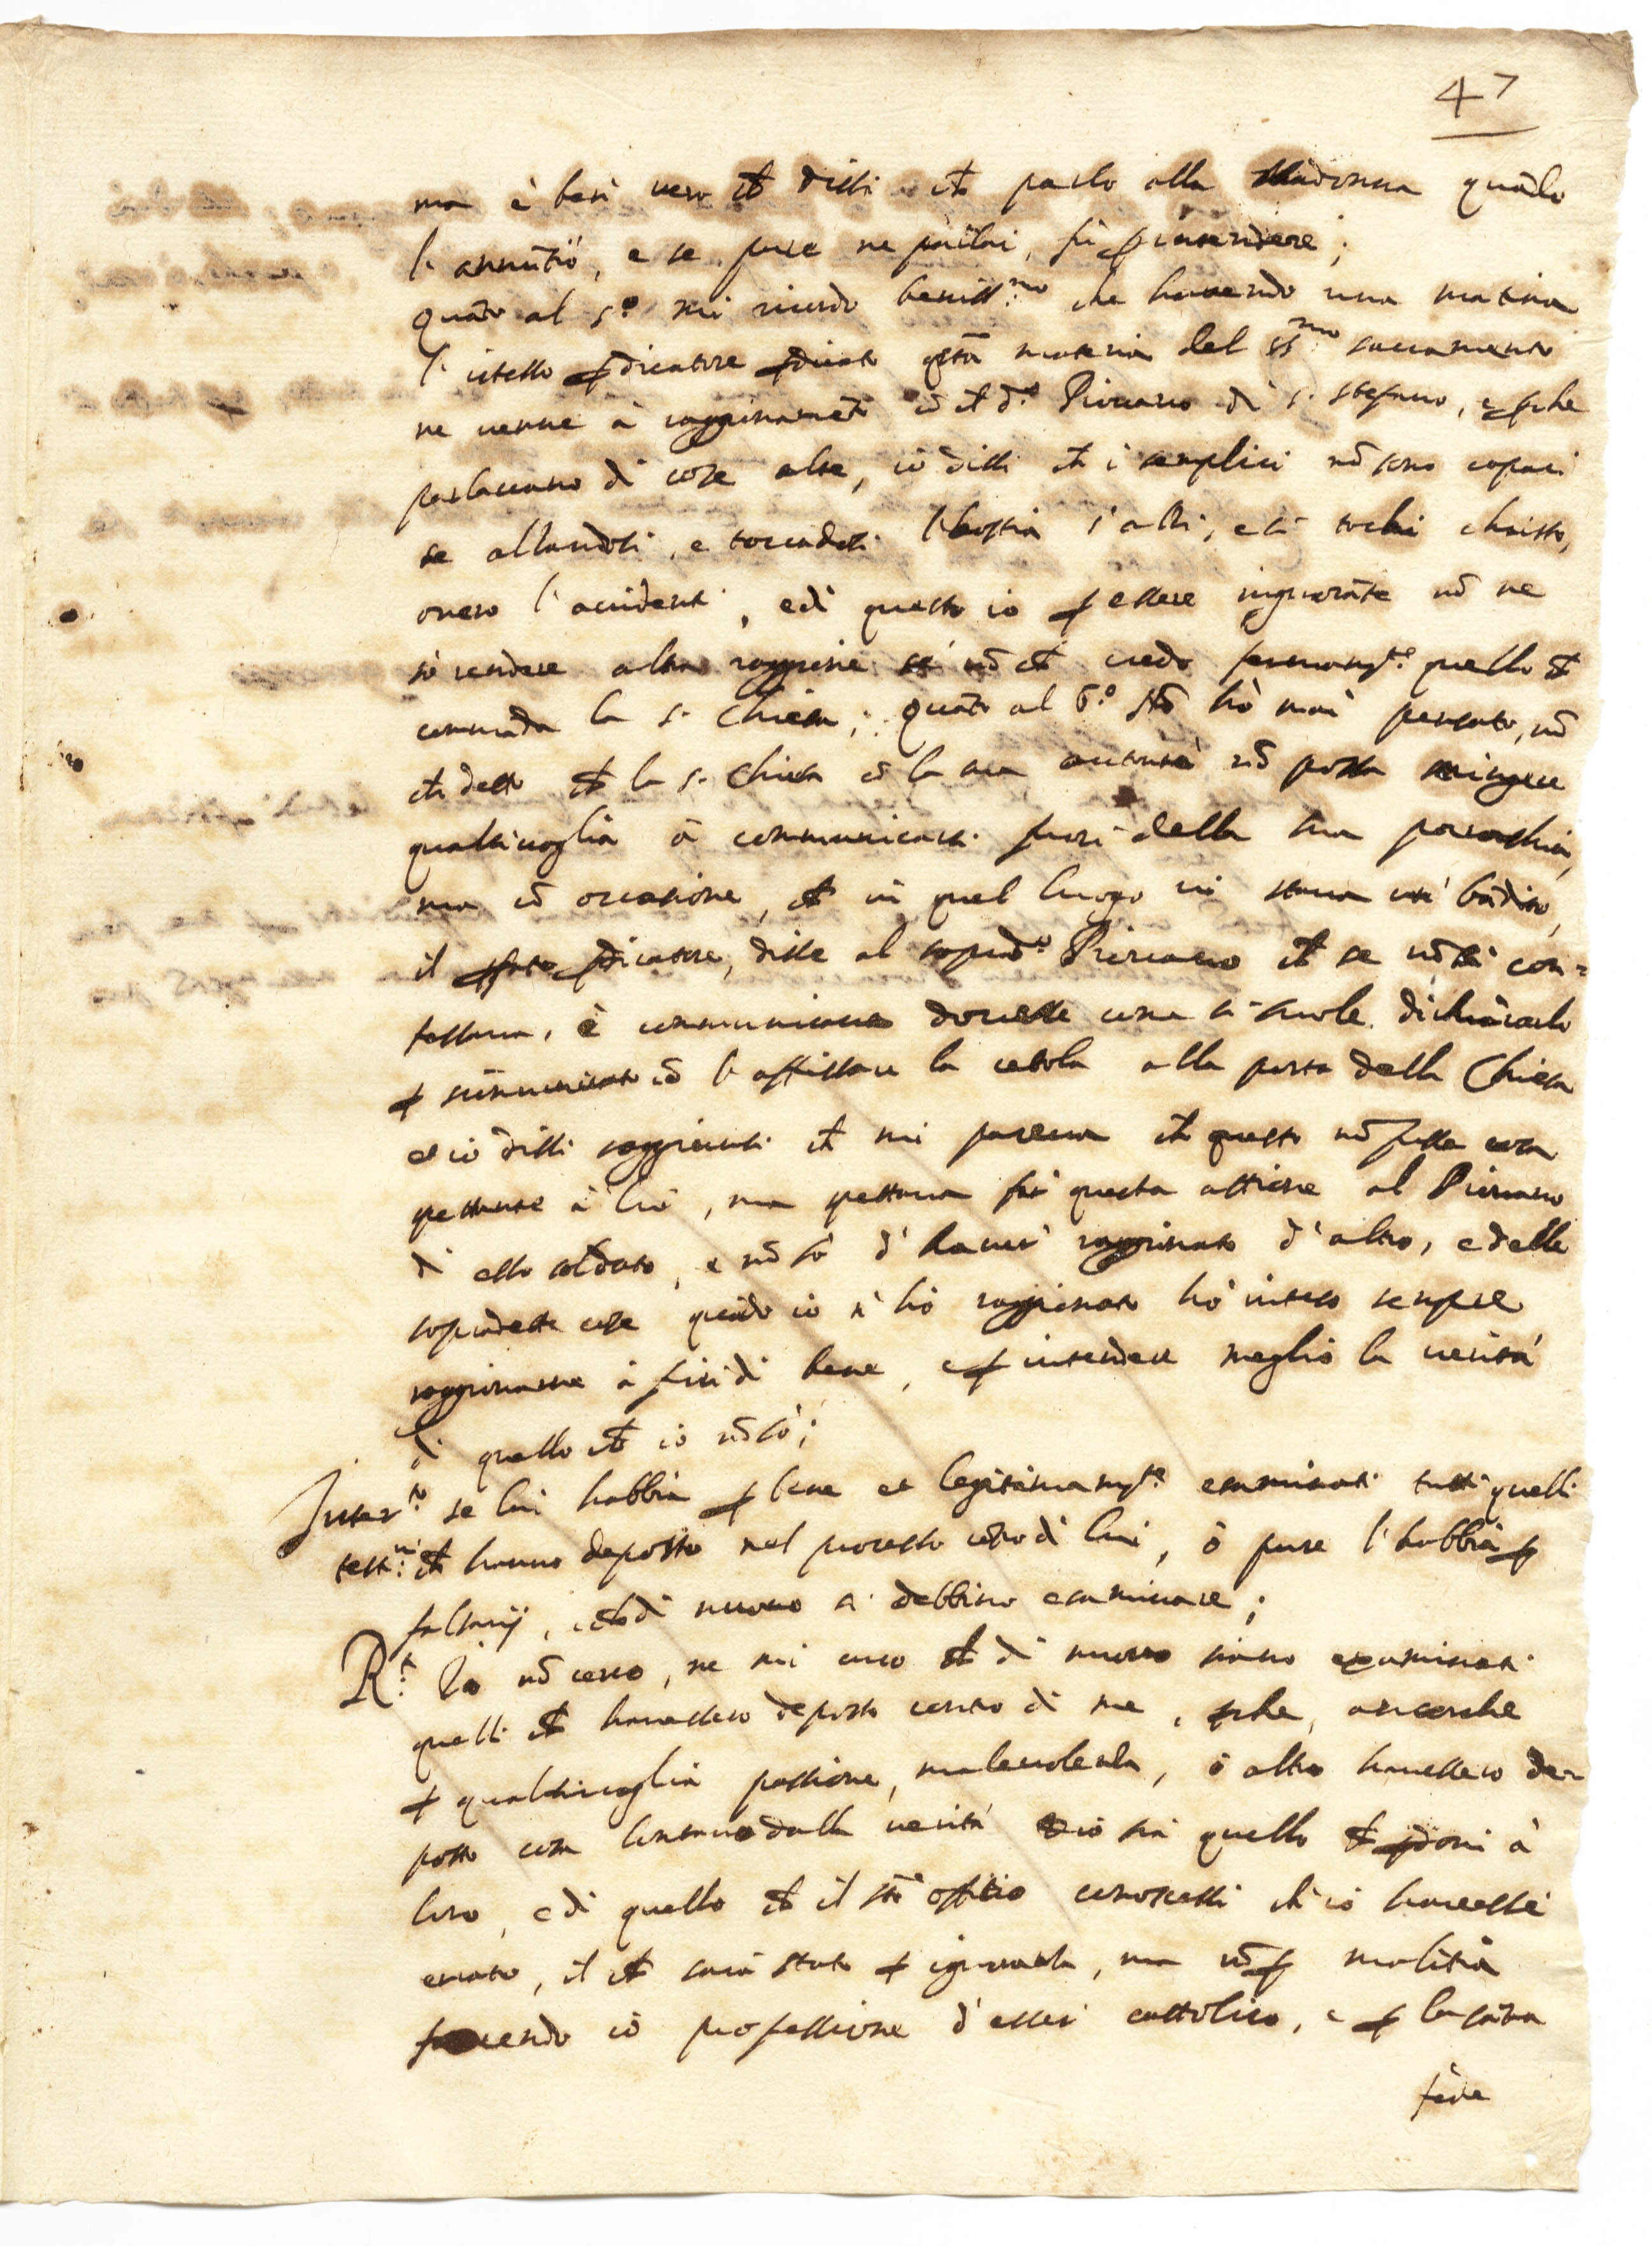 47
ma è ben vero ch disse ch parlo alla Madonna quādo
l'annūtiò, e se pure ne parlai, fù p intendere;
Quāto al 5.º mi ricordo beniss.mo che havendo una matina
l'istesso pdicatore pdicato qstā materia del ss.mo sacramento
ne venne à raggionamēto cō il d.º Piovano di s. stefano, e pche
parlavano di cose alte, io dissi ch i semplici nō sono capaci
se alzandosi, e toccādosi l'hostia s'alzi, e si tochi christo,
overo l'accidenti, e di questo io p essere ignorāte nō ne
sò rendere altra raggione se nō ch credo fermamte quello ch
comāda la s. Chiesa; Quāto al 6.º nō hò mai pensato, nō
ch detto ch la s. Chiesa cō la sua auttorità nō possa stringere
qualsivoglia à communicarsi fuori della sua parochia,
ma cō occasione, ch in quel luogo vi stava un bādito,
il pfato pdicatore, disse al soprad.º Piovano ch se nō si con=
fessava, è communicava dovesse come si suole dichiararlo
p scommunicato cō l'affissare la cetola alla porta della Chiesa
et io dissi raggionādo ch mi pareva ch questo nō fusse cosa
spettante à lui, ma spettava far questa attione al Piovano
di esso soldato, e nō sò d'haver raggionato d'altro, e delle
sopradette cose quādo io n'hò raggionato hò inteso sempre
raggionarne à fin di bene, e p intendere meglio la verità
di quello ch io nō sò;
Inter.to se lui habbia p bene et legitimamte essaminati tutti quelli
test.ni ch hanno deposto nel processo cōtro di lui, ò pure l'habbia p
falsarij, e ch di nuovo si debbino esaminare;
R.t Io nō cerco, ne mi curo ch di nuovo siano examinati
quelli ch havessero deposto contro di me, pche, ancorche
p qualsivoglia passione, malevolenza, ò altro havessero de=
posto cosa lontana dalla verità Dio sia quello ch pdoni à
loro, e di quello ch il sto offitio conoscessi ch io havessi
errato, il ch sarà stato p ignoranza, ma nō p malitia
facendo io professione d'esser cattolico, e p la santa
fede